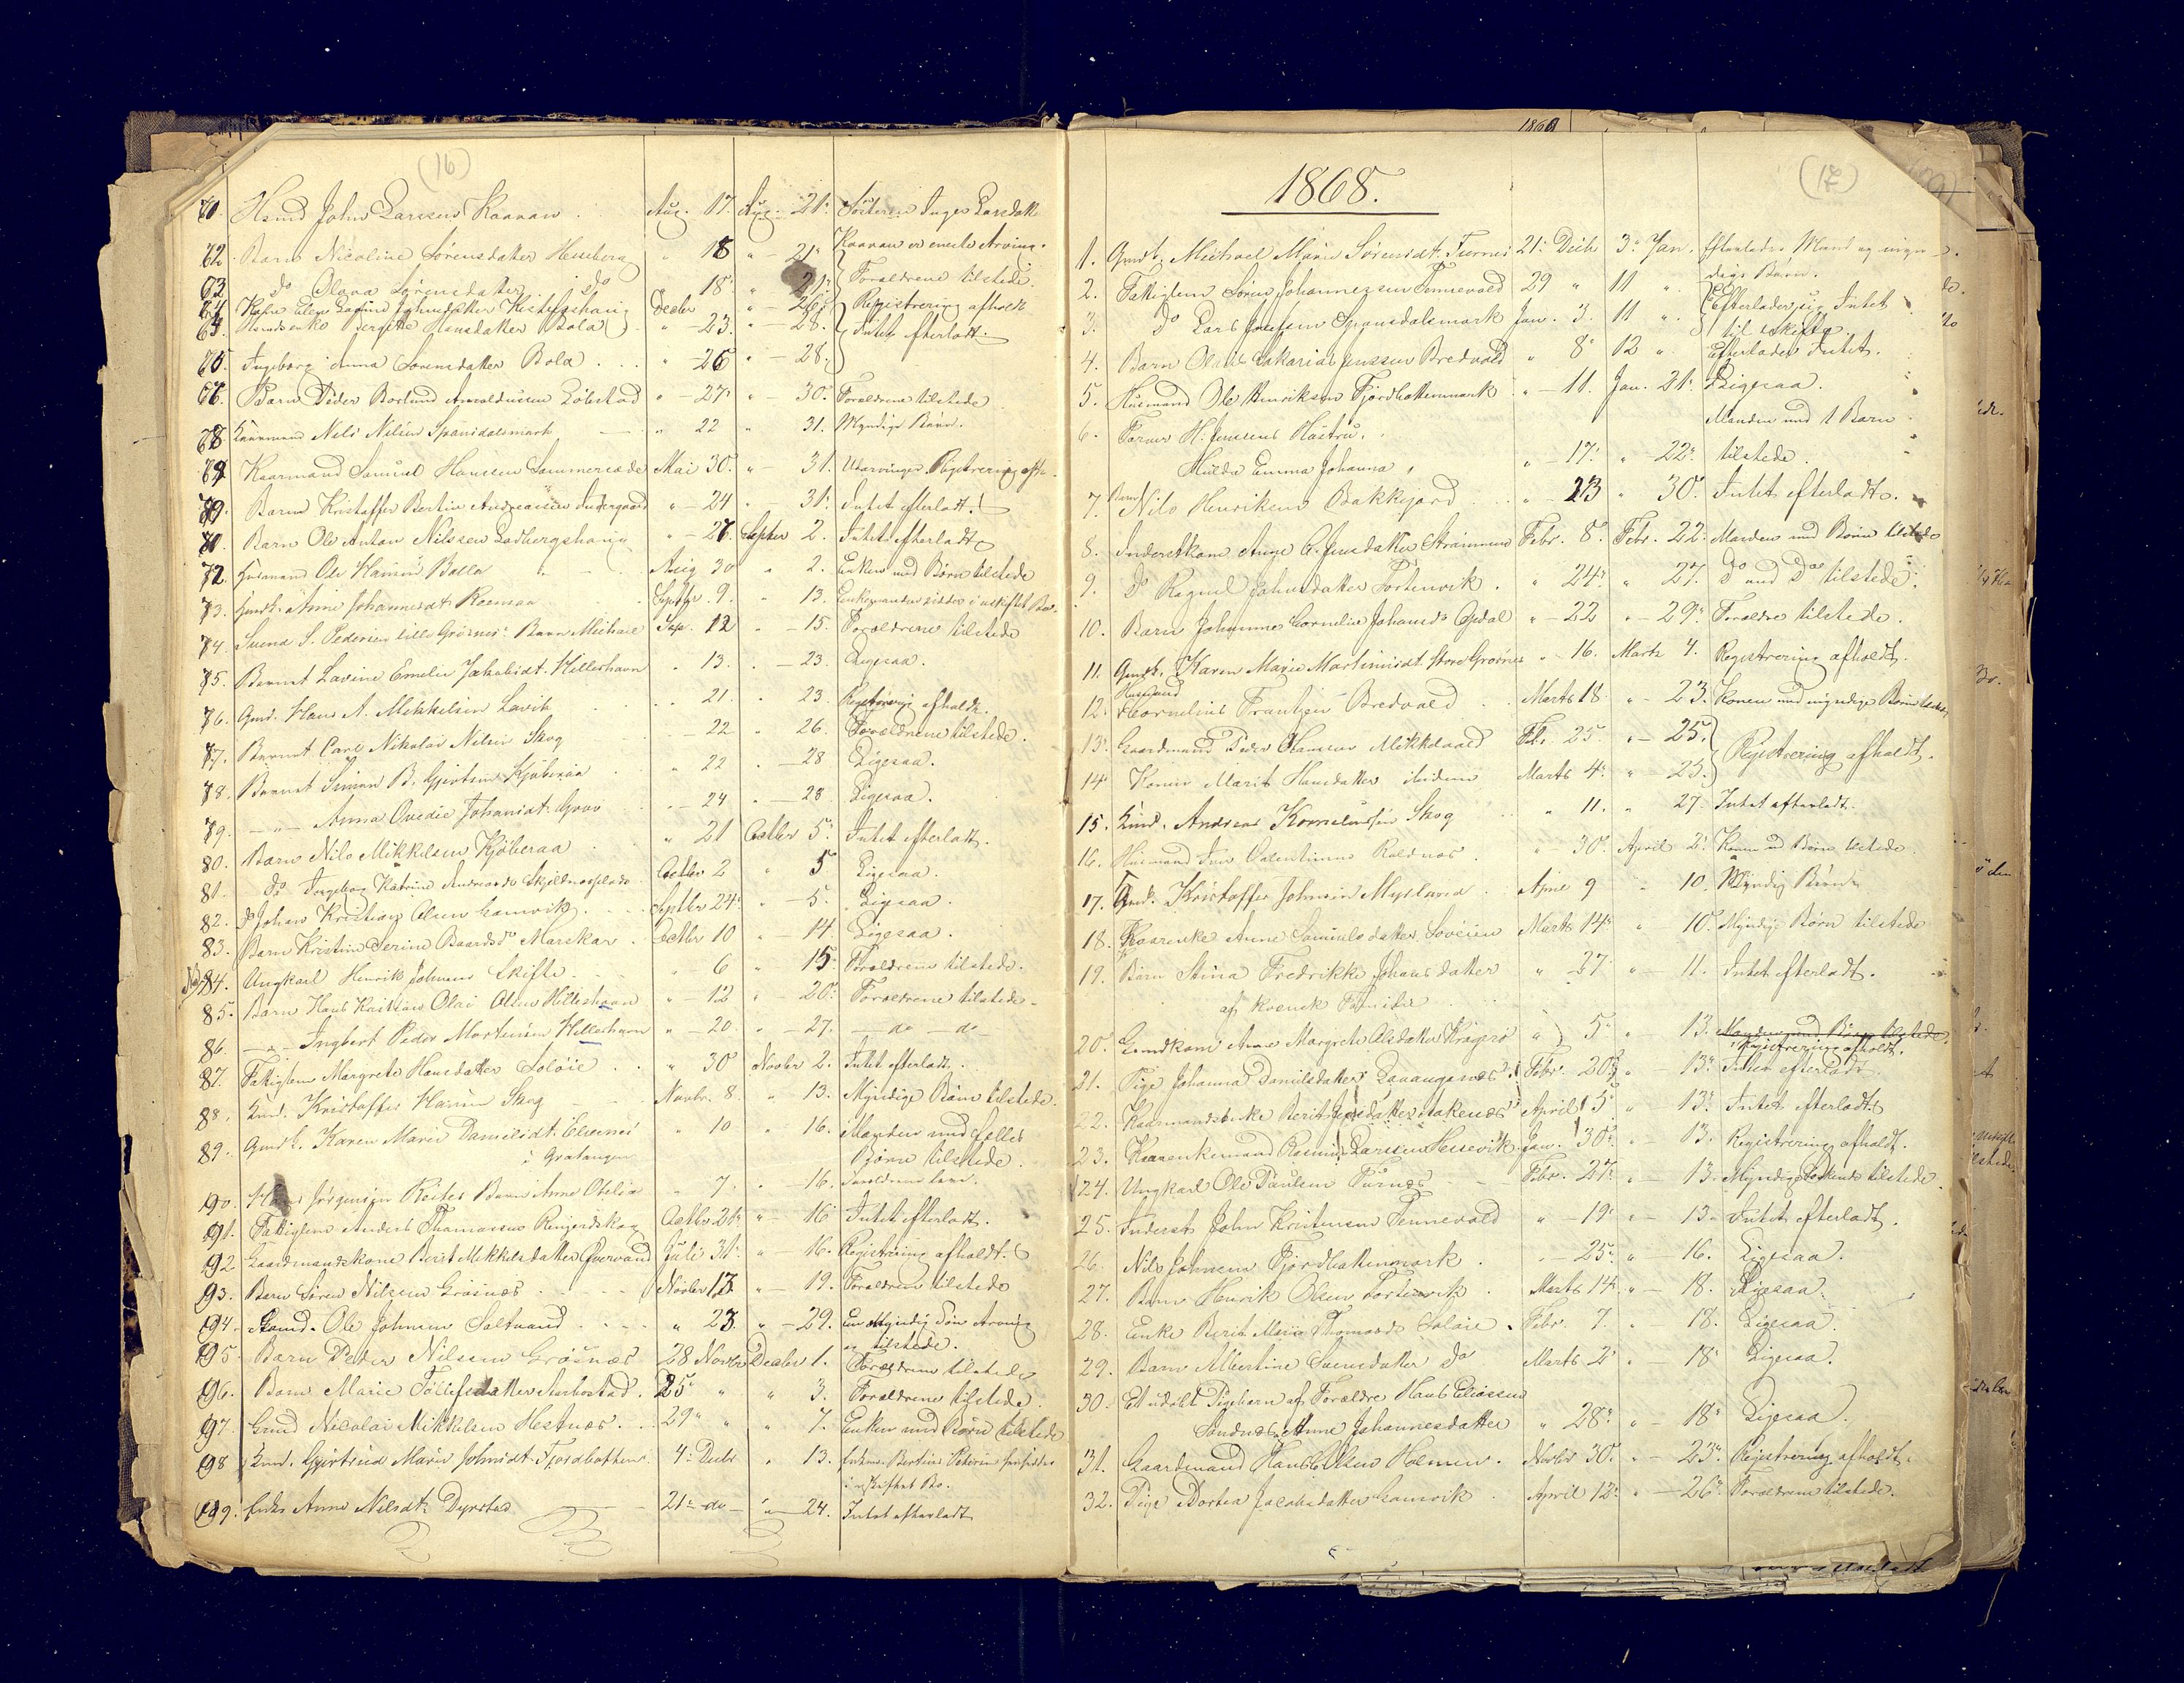 (16)
61. Hsmd John Larssen Kaavan Aug. 17. Aug. 21. Søsteren Inger Larsdatt
Kaavan er eneste Arving.
62. Barn Nicoline Sørensdatter Hemberg " 18 " 21.
63. do Olava Sørensdatter do 18. " 21. Forældrene tilstede.
64. Decbr " 26. Registrering afholdt
Hansdatter Bola " 23. " 28. Intet efterladt.
Ingeborg Anna Sørensdatter Bola " 26 " 28.
Barn Peder Borlund Løbestad " 27 " 30. Forældrene tilstede
Nils Nilsen Spansdalsmark " 22 " 31. Myndige Børn.
Kaarmand Samuel Hanssen Sommersæde Mai 30. " 31. Udarvinger. Registrering afh.
Barn Kristoffer Bertin Andreassen Indregaard " 24 " 31. Intet efterladt.
Barn Ole Anton Nilssen Lodbergshaug " 28. Septbr 2. Intet efterladt
72. Husmand Ole Hansen Bolla Aug 30 " 2. Enken med Børn tilstede
73. Gmdk. Anne Johannesdt. Roemaa Septbr. 9. " 13. Enkemanden sidder i uskiftet Bo.
74. Svend S. Pedersen lille Grøsnes Barn Michael Sep. 12 " 15. Forældrene tilstede
75. Barnet Lavine Emelie Jakobsdt. Hilleshavn " 13. " 23. Ligesaa.
76. Gmd. Hans A. Mikkelsen Lavik " 21. " 23. Registrering afholdt.
77. Barnet Carl Nikolai Nilsen Skog 22 " 26. Forældrene tilstede.
78. Barnet Simon B. Gjertsen Kjøberaa " 22 " 28 Ligesaa.
79. — " — Anna Ovedie Johansdt. Grov " 24 " 28 Ligesaa.
80. Barn Nils Mikkelsen Kjøberaa " 21 Octbr 5. Intet efterladt.
81. do Ingeborg Katrine Andreasd. Skjellnesplads Octbr 2 " 5 Ligesaa.
82. do Johan Kristian Olsen Hamvik Septbr 24. " 5. Ligesaa.
83. Barn Kristine Serine Baardsd. Marskar Octbr 10 " 14. Ligesaa.
84. Ungkarl Henrik Johnsen Skifte " 6 " 15. Forældrene tilstede.
85. Barn Hans Kristian Olai Olsen Hilleshavn " 12 " 20. Forældrene tilstede.
86. — " — Ingbert Peder Mortensen Hilleshavn " 20. " 27. — do — do —
87. Fattiglem Margrete Hansdatter Soløie " 30 Novbr 2. Intet efterladt.
88. Kmd. Kristoffer Hansen Skog Novbr. 8. " 13. Myndige Børn tilstede.
89. Gmdk. Karen Marie Danielsdt. Elvenes " 10 " 16. Manden med fælles
i Gratangen Børn tilstede.
90. Hans Jørgensen Reites Barn Anne Otelia " 7. " 16. Forældrene lever.
91. Fattiglem Anders Thomassen Renjerdskog Octbr 21. " 16 Intet efterladt.
92 Gaardmandskone Berit Mikkelsdatter Qvervand Juli 31. " 16. Registrering afholdt.
93. Barn Søren Nilsen Grøsnes Novbr 13 " 19. Forældrene tilstede
94. Gamd. Ole Johnsen Saltvand " 23. " 29. En myndig Søn Arving
er tilstede.
95. Barn Peter Nilsen Grøsnes 28 Novbr Decbr 1. Forældrene tilstede
96. Barn Marie Tollefsdatter Aarbostad. 25 " " 3. Forældrene tilstede.
97. Gmd Nicolai Mikkelsen Hestnæs. 29 " " 7. Enken med Børn tilstede
98 Kmd. Gjertrud Marie Johnsdt. Fjordbotten 4. Decbr " 13. Enkem. Bertius Petersen hensidder
i uskiftet Bo.
99. Enke Anne Nilsdt. Dyrstad 21. do " 24. Intet efterladt
1868.
(17)
1. Gmdk. Michael Marie Sørensdt. Furnes 21. Decbr 3. Jan. Efterlader Mand og myn-
dige Børn.
2. Fattiglem Søren Johannessen Tennevold 29 " 11 " Efterlader sig Intet
3. do Lars Joulsen Spansdalsmark Jan. 3. 11 " til skifte.
4. Barn Olaus Zakarias Jenssen Bredvold " 8 12 " Efterlader Intet.
5. Husmand Ole Henriksen Fjordbottenmark " 11. Jan. 21. Ligesaa.
6. Farver H. Jenssens Hustru, Manden med 1 Barn
Hulda Emma Johanna " 17. " 22. tilstede.
7. Barn Nils Henriksen Bakkejord " 23 " 30. Intet efterladt.
8. Inderstkone Ane C. Jensdatter Strømmen Febr. 8. Febr. 22. Manden med Børn tilstede
9. do Ragnel Johnsdatter Fortenvik. " 24. " 27. do med do tilstede.
10. Barn Johanne Cornelie Johansd. Opdal " 22 " 29. Forældre tilstede.
11. Gmdk. Karen Marie Martinusdt. Store Grøsnes " 16. Marts 4. Registrering afholdt.
12. Husmand Kornelius Frantsen Bredvold Marts 18 " 23. Konen med myndige Børn tilstede
13. Gaardmand Peder Hansen Mikkelvold Feb. 25 " 25. Registrering afholdt.
14 Konen Marit Hansdatter ibidem Marts 4. " 25.
15. Kmd. Andreas Korneliussen Skog " 11. " 27. Intet efterladt.
16. Husmand Iver Valentinsen Roldnæs " 30. April 2. Konen og Børn tilstede.
17. Gmd. Kristoffer Johnsen Myrland Apne 9 " 10. Myndig Børn
18. Kaarenke Anne Samuelsdatter Søveien Marts 14. " 10. Myndige Børn tilstede
19. Barn Stina Fredrikke Johansdatter " 27 " 11. Intet efterladt.
af kvensk Familie
20. Gmdkone Anne Margrete Olsdatter Krågerø " 5 " 13. Manden med Børn tilstede.
Registrering afholdt.
21. Pige Johanna Danielsdatter Lavangsnæs Febr. 20 " 13. Intet efterladt.
22. Kaarmandsenke Berit Jensdatter Aakenæs April 5 " 13. Intet efterladt
23. Kaarenkemand Rasmus Larssen Hessevik Jan. 30. " 13. Registrering afholdt.
24. Ungkarl Ole Paulsen Furnæs Febr. 27. " 13. Myndig Søskende tilstede.
25. Inderst John Kristensen Tennevold " 19 " 13. Intet efterladt.
26. Nils Johnsen Fjordbottenmark " 25. " 16. Ligesaa.
27. Barn Henrik Olsen Fortenvik Marts 14. " 18. Ligesaa.
28. Enke Berit Marie Thomasd. Soløie. Febr. 7. " 18. Ligesaa.
29. Barn Albertine Svensdatter do Marts 2 " 18 Ligesaa.
30. Et udøbt Pigebarn af Forældre Hans Eliassen
Sandnes, Anne Johannesdatter " 28. " 18. Ligesaa.
31. Gaardmand Hans Olsen Holmen. Novbr 30. " 23. Registrering afholdt.
32. Pige Dortea Jacobsdatter Hamvik April 12. " 26. Forældrene tilstede.